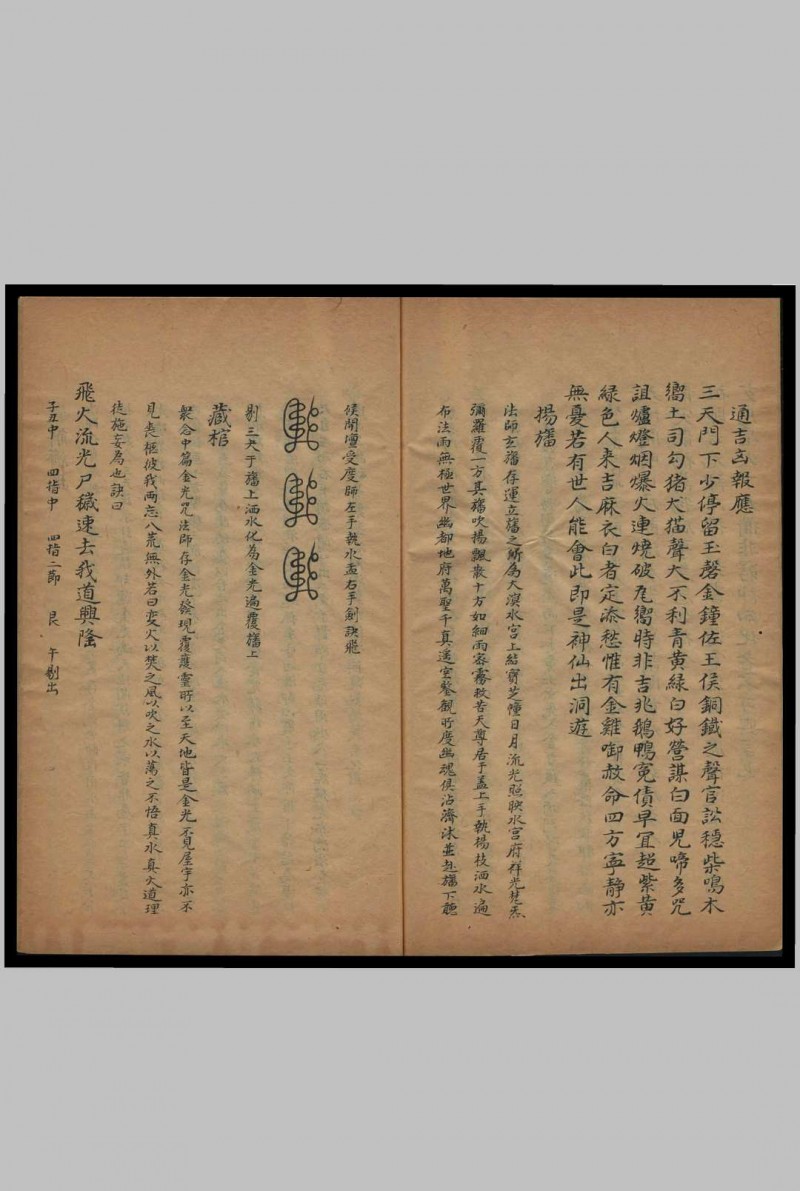 通吉凶報應
三天門下少停留玉磬金鐘佐王侯銅鐵之聲官訟穩柴鳴木
嚮土司勾猪犬猫聲大不利青黃綠白好營謀白面児啼多咒
詛爐燈烟爆火連燒破瓦嚮時非吉兆鵝鴨冤債早宜超紫黃
緑色人来吉麻衣白者定添愁惟有金雞啣赦命四方寜静亦
無憂若有世人能會此即是神仙出洞遊
揚旛
法師玄旛存運立旛之所為大溟水宫上結寳芝幢日月流光照映水宫府祥光
彌羅覆一方其旛吹揚飄散十方如細雨宻霧救苦天尊居于盖上手執楊枝洒水遍
布法雨無極世界幽都地府萬聖千真遥空鑒観所度幽魂俱沾濟沐並赴旛下聽
候開壇受度師左手執水盂右手劍訣飛
剔三大于旛上洒水化為金光遍覆旛上
藏棺
衆念中篇金光咒法師存金光發現覆䕶靈所以至天地皆是金光不見屋宇亦不
見丧柩彼我両忘八荒無外若曰変火以焚之風以吹之水以蕩之不悟真水真火道理
徒施妄為也訣曰
飛火流光尸穢速去我道興隆
子丑中 四指中 四指二節 艮 午剔出